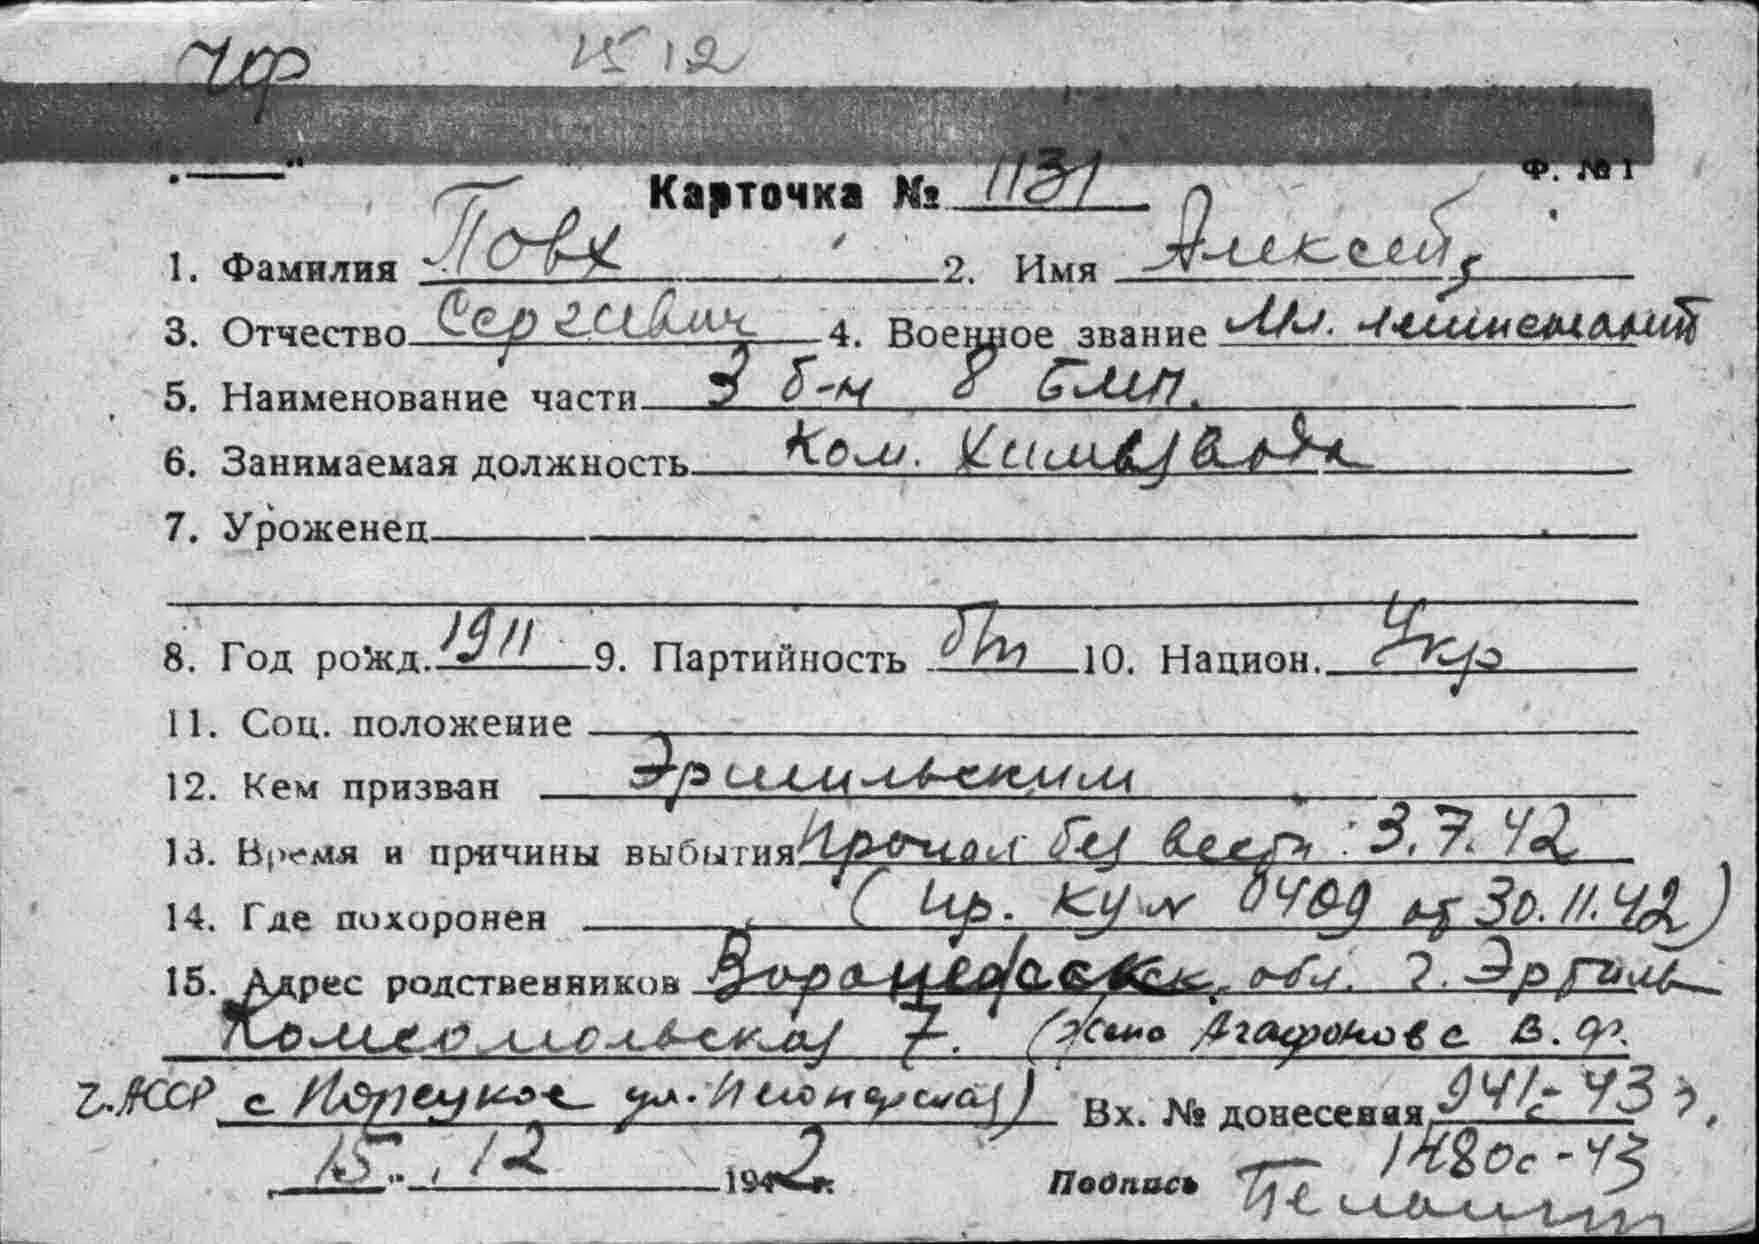 ЧФ 15 12
Ф. № 1
Карточка № 1131
1. Фамилия Повх 2. Имя Алексей
3. Отчество Сергиевич 4. Военное звание Мл. лейтенант
5. Наименование части 3 б-н 8 БМП.
6. Занимаемая должность Ком. химвзвода
7. Уроженец
8. Год рожд. 1911 9. Партийность б/п 10. Национ. Укр
11. Соц. положение
12. Кем призван
13. Время и причины выбытия Пропал без вести 3.7.42
14. Где похоронен (Пр. КУ № 0409 от 30.11.42)
15. Адрес родственников обл. г. Эртиль
Комсомольская 7. (жена Агафонова В. Ф.
Ч.АССР с Порецкое ул. Пионерская) Вх. № донесения 941с-43 г.
1480с-43
15 " 12 1942 г. Подпись